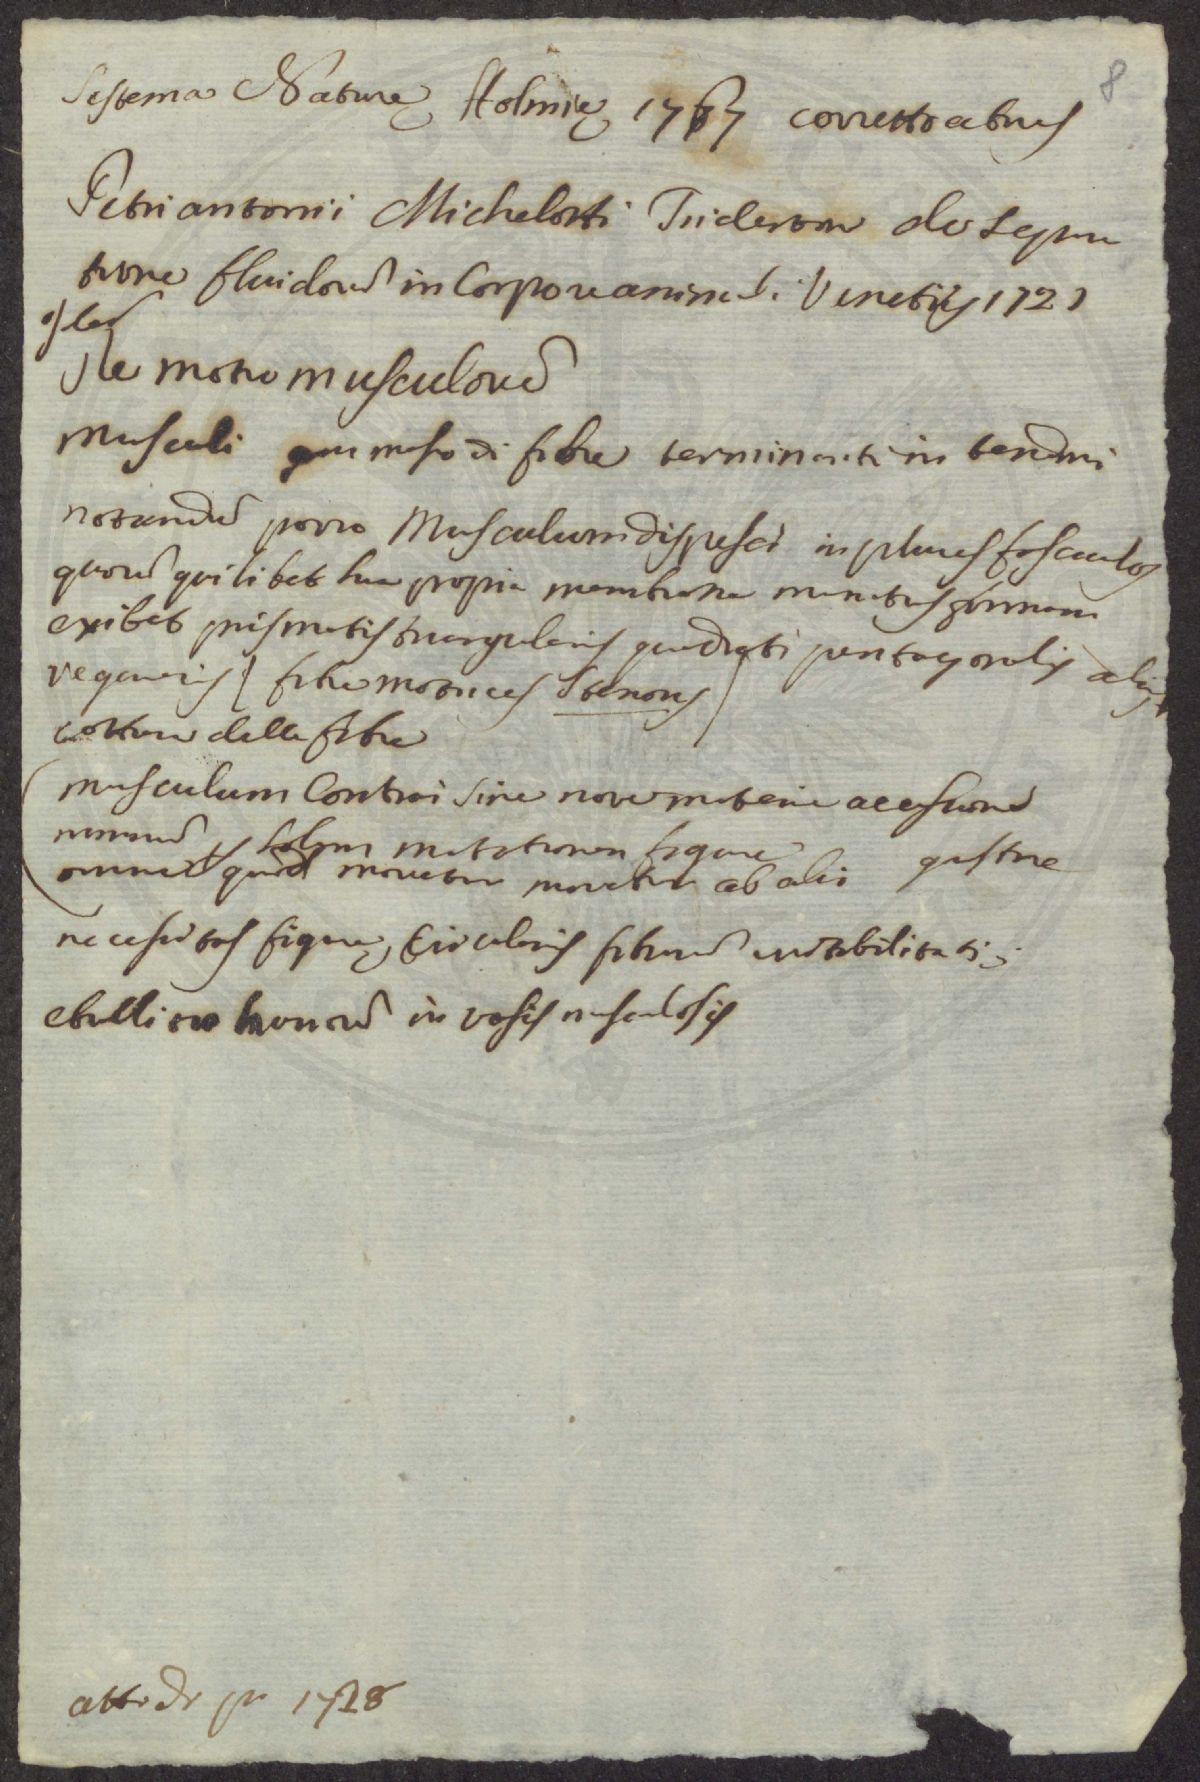 8
Sistema Naturę Holmię 1767
Petriantonii Michelotti Tridentini de Separa
tione fluidorū in Corpore animali Venetijs 1721
De motu musculorū
Musculi ammasso di fibre terminanti in tendini
notandū porro Musculum dispesci in plures fasciculos
quorū quilibet sua propria membrana munitus formam
exibet prismatis triangularis quadrati pentagonalis
fibre motrices Stenonis
cotture delle fibre
musculum Contrai sine nova materia accessione
solam mutationem figure
omne quod movetur movetur ab alio
necessitas figurę Circularis fibrarū
in vasis musculosis
1728